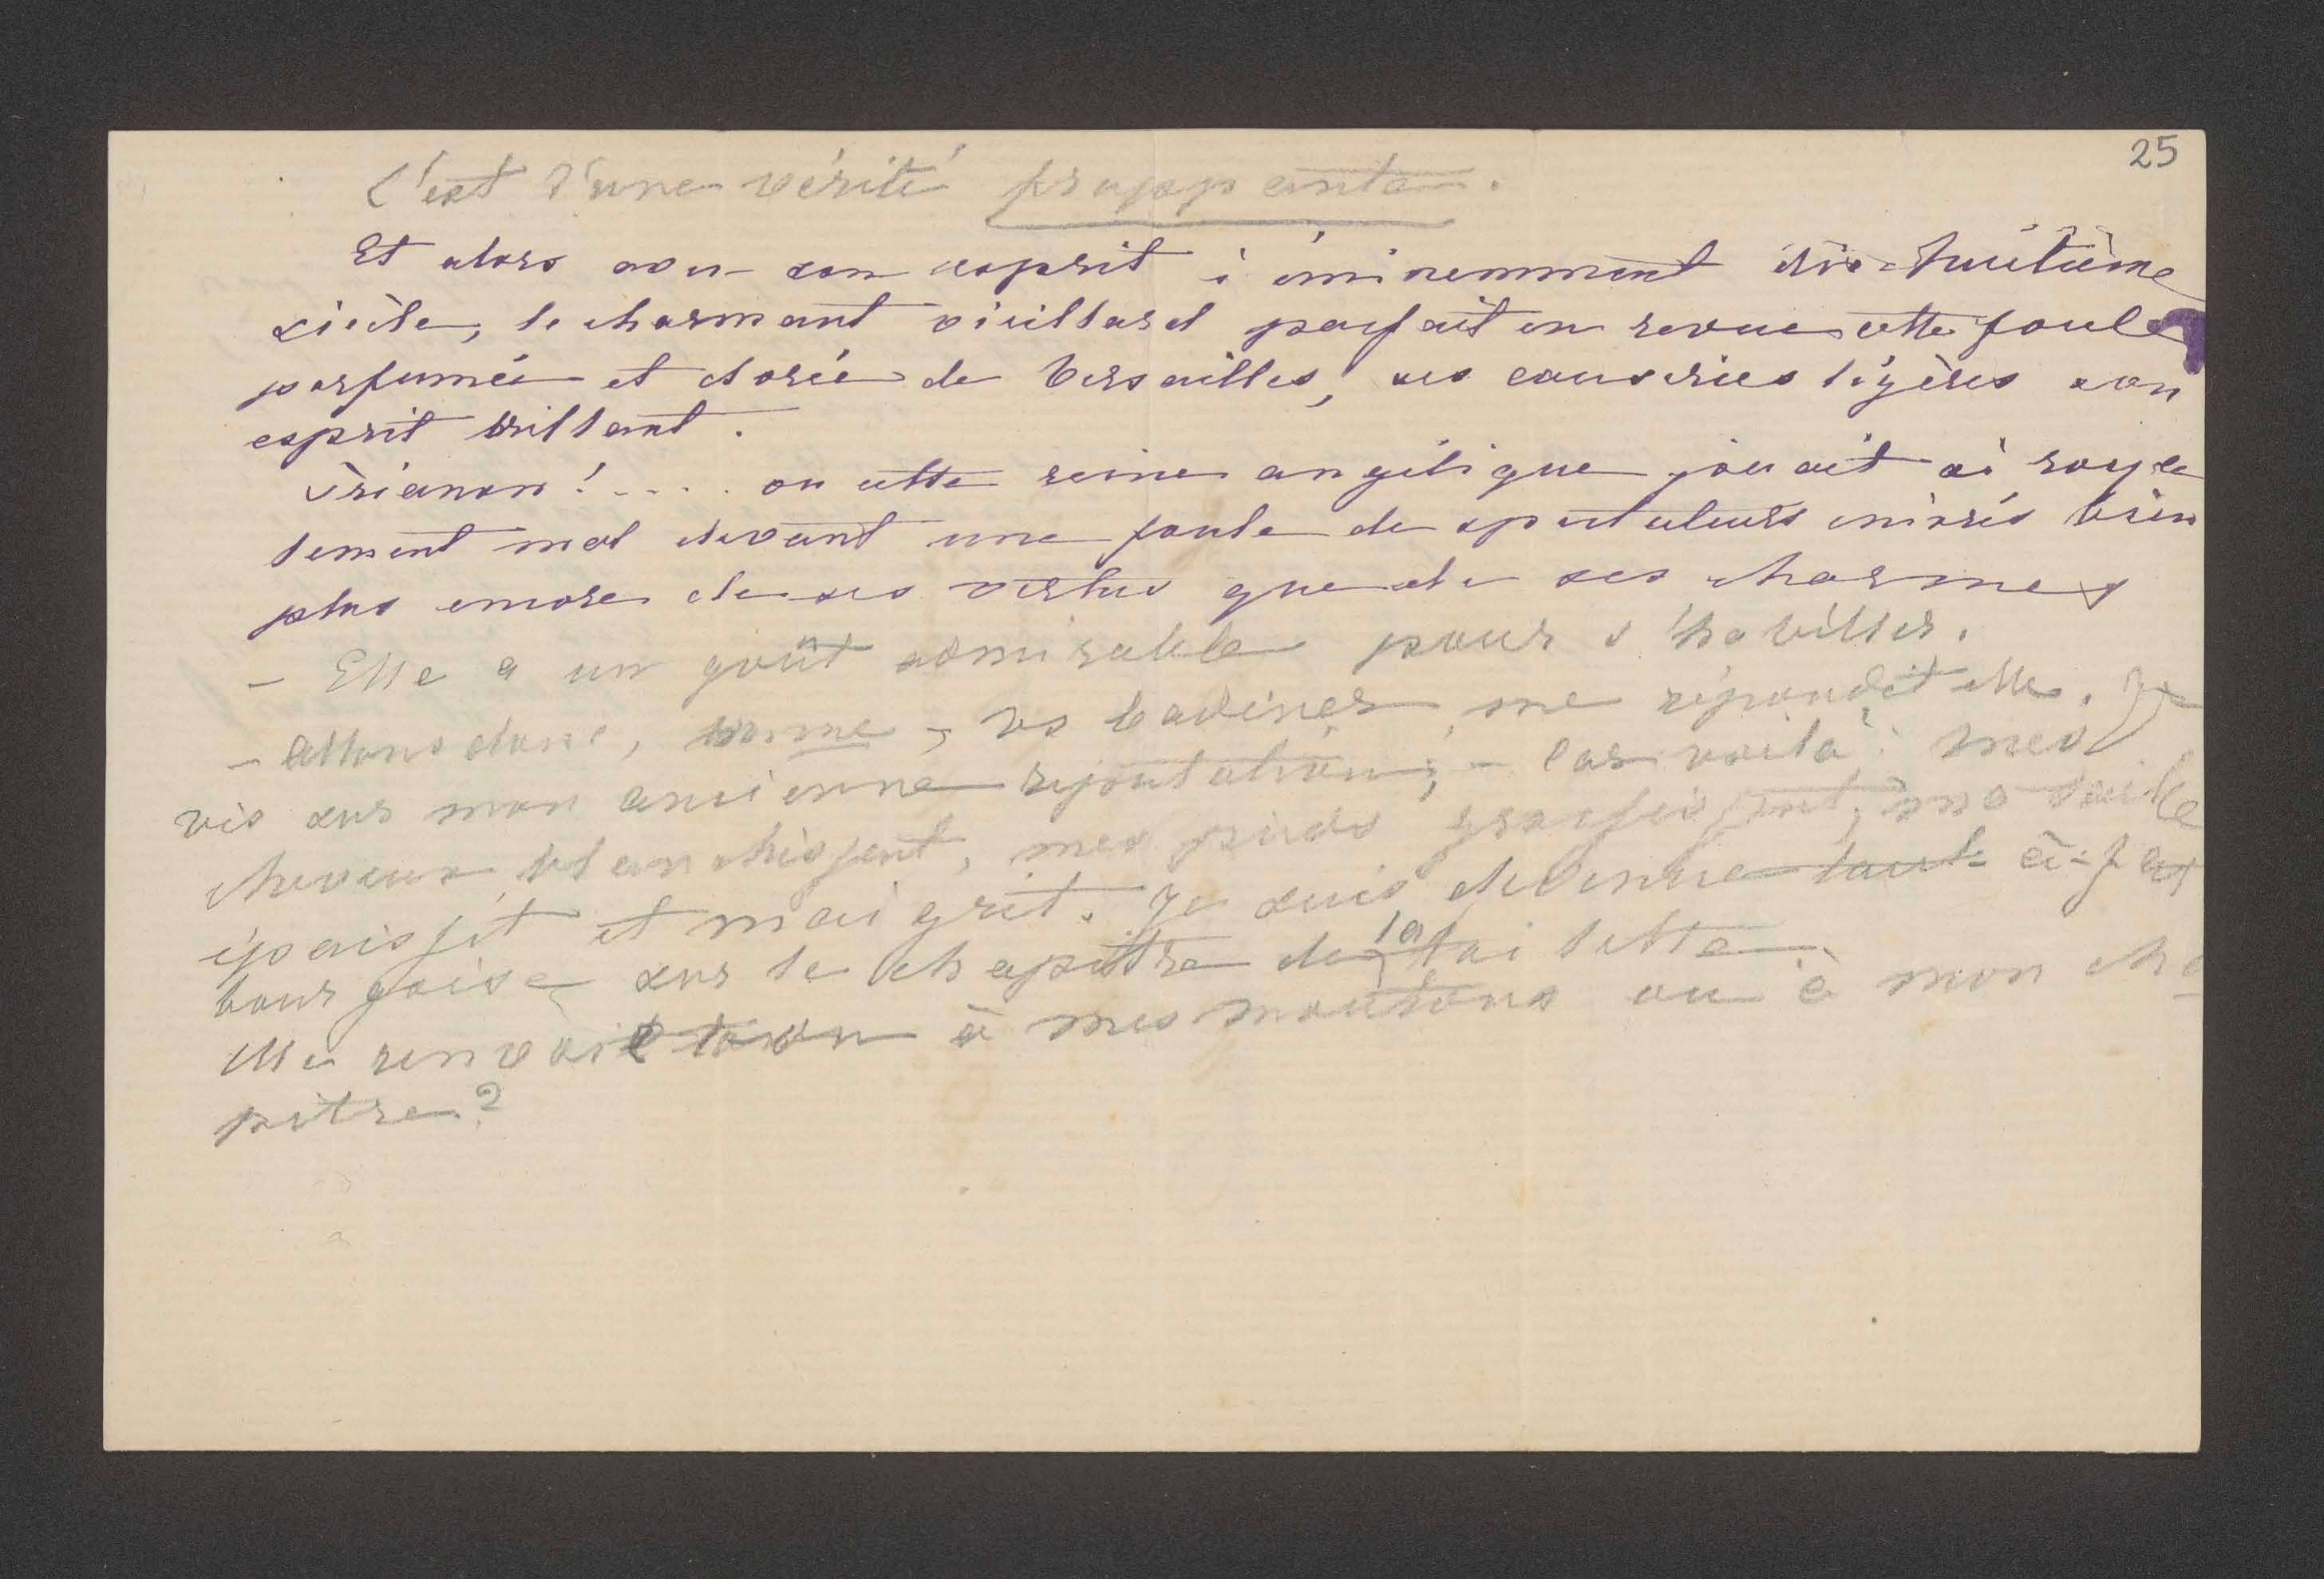 25
C'est d'une vérité frappante.
Et alors avec son esprit si éminemment dix-huitième
siècle, le charmant vieillard passait en revue cette foule
parfumée et dorée de Versailles, ses causeries légères son
esprit brillant.
Trianon! .... ou cette reine angélique jouait si royale
lement mal devant une foule de spectateurs enivrés bien
plus encore de ses vertus que de ses charmes
- Elle a un goût admirable pour s'habiller.
- Allons donc, vs badinez me répondit elle. Je
vis sur mon ancienne réputation; - Car voilà: mes
cheveux blanchissent, mes pieds grossissent, ma taille
épaissit et maigrit. Je suis devenue tout-à-fait
bourgoise sur le chapitre de la toilette.
Me renvoie à mes moutons ou à mon cha-
pitre?